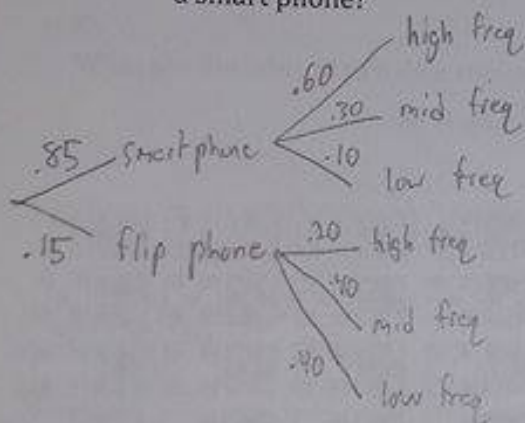 a smart phone?
high freq
.60
.30 mid freq
.85 smartphone
.10
low freq
.15 flip phone
.20 high freq
.40
mid freq
.40
low freq